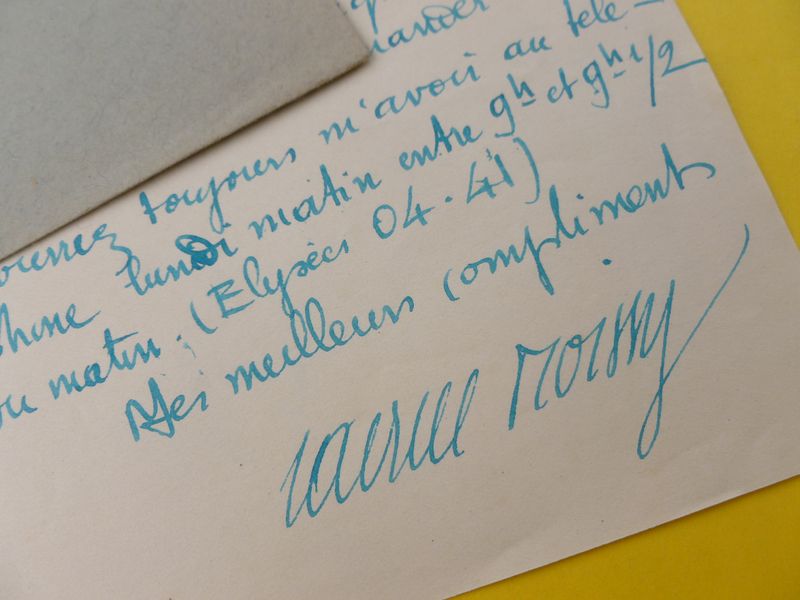 mander
pourrez toujours m'avoir au télé-
phone lundi matin entre 9h et 9h 1/2
du matin. (Elysées 04.41)
Mes meilleurs compliments